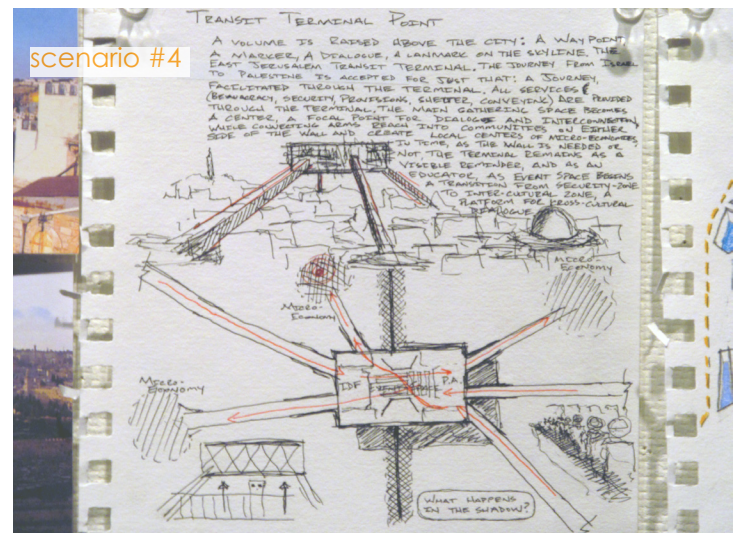 TRANSIT TERMINAL POINT
scenario #4
A VOLUME IS RAISED ABOVE THE CITY: A WAY POINT,
A MARKER, A DIALOGUE, A LANMARK ON THE SKYLINE. THE
EAST JERUSALEM TRANSIT TERMINAL. THE JOURNEY FROM ISRAEL
TO PALESTINE IS ACCEPTED FOR JUST THAT: A JOURNEY,
FACILITATED THROUGH THE TERMINAL. ALL SERVICES
(BEAURACRACY, SECURITY, PROVISIONS, SHELTER, CONVEYINK) ARE PROVIDED
THROUGH THE TERMINAL. THE MAIN GATHERING SPACE BECOMES
A CENTER, A FOCAL POINT FOR DIALOGUE AND INTERCONNECTION,
WHILE CONNECTING ARMS REACH INTO COMMUNITIES ON EITHER
SIDE OF THE WALL AND CREATE LOCAL CENTERS OF MICRO-ECONOMIES.
IN TIME, AS THE WALL IS NEEDED OR
NOT, THE TERMINAL REMAINS AS A
VISIBLE REMINDER, AND AS AN
EDUCATOR, AS EVENT SPACE BEGINS
A TRANSITION FROM SECURITY-ZONE
TO INTER-CULTURAL ZONE, A
PLATFORM FOR KROSS-CULTURAL
DIALOGUE
MICRO-
ECONOMY
MICRO-
ECONOMY
MICRO-
ECONOMY
IDF EVENT SPACE P.A.
WHAT HAPPENS
IN THE SHADOW?